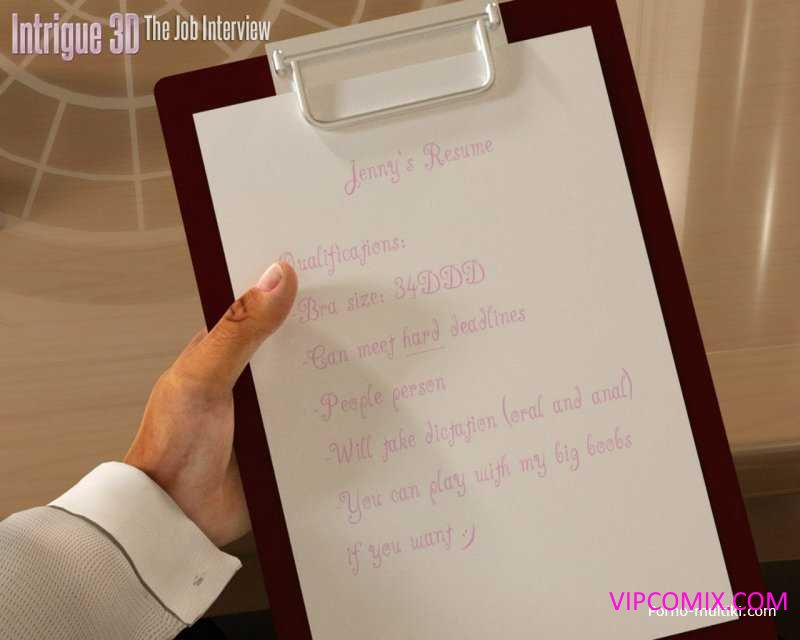 Intrigue 3D The Job Interview
Jenny's Resume
Qualifications:
-Bra size: 34DDD
-Can meet hard deadlines
-People person
-Will take dictation (oral and anal)
-You can play with my big boobs
if you want :)
VIPCOMIX.COM
Porno-multiki.com